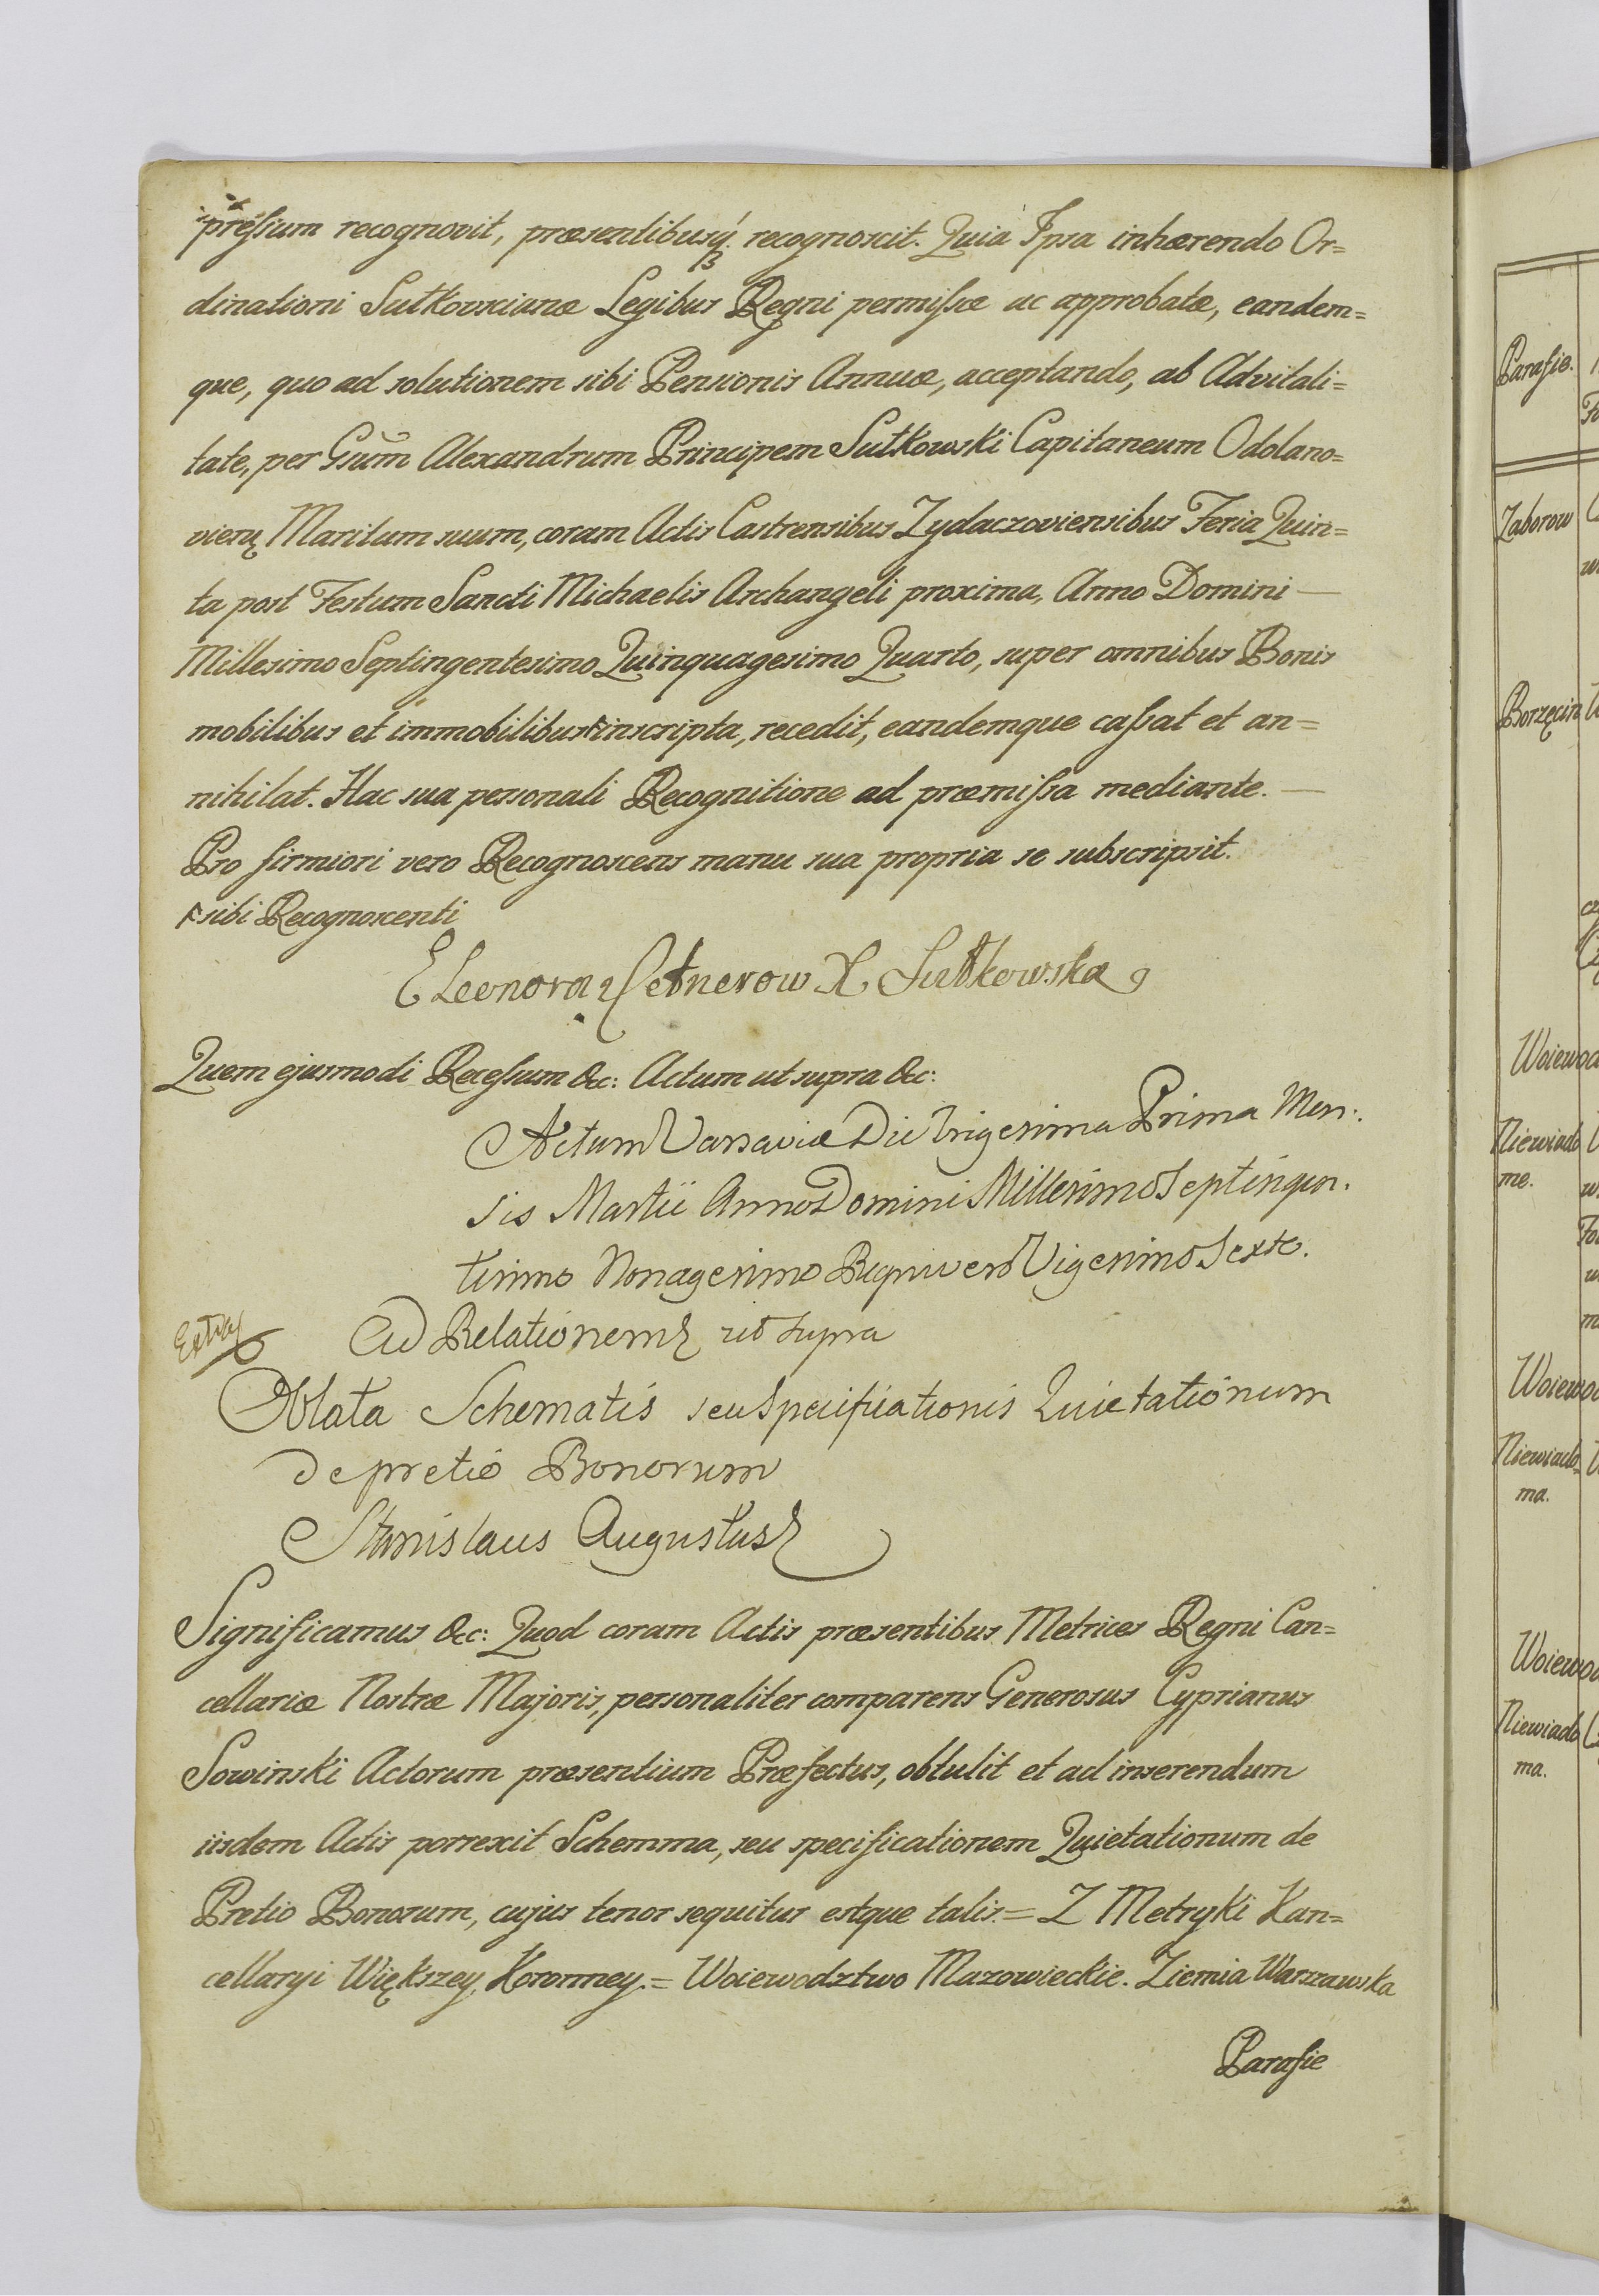 pressum recognovit, præsentibusq́ recognoscit. Quia Ipsa inhærendo Or=
dinationi Sułkovscianæ Legibus Regni permissæ ac approbatæ, eandem=
que, quo ad solutionem sibi Pensionis Annuæ, acceptando, ab Advitali=
tate, per Gsũm Alexandrum Principem Sułkowski Capitaneum Odolano=
viens Maritum suum, coram Actis Castrensibus Zydaczoviensibus Feria Quin=
ta post Festum Sancti Michaelis Archangeli proxima, Anno Domini —
Millesimo Septingentesimo Quinquagesimo Quarto, super omnibus Bonis
mobilibus et immobilibus inscripta, recedit, eandemque cassat et an=
nihilat. Hac sua personali Recognitione ad præmissa mediante. —
Pro firmiori vero Recognoscens manu sua propria se subscripsit.
sibi Recognoscenti
Eleonora z Cetnerow X. Sułkowska
Quem ejusmodi Recessum &c: Actum ut supra &c:
Actum Varsaviæ Die Trigesima Prima Men:
sis Martii Anno Domini Millesimo Septingen.
tesimo Nonagesimo Regni vero Vigesimo Sexto.
Ad Relationem ut supra
Oblata Schematis seu Specificationis Quietationum
de pretio Bonorum
Stanislaus Augustus
Significamus &c: Quod coram Actis præsentibus Metrices Regni Can=
cellariæ Nostræ Majoris, personaliter comparens Generosus Cyprianus
Sowinski Actorum præsentium Præfectus, obtulit et ad inserendum
iisdem Actis porrexit Schemma, seu specificationem Quietationum de
Pretio Bonorum, cujus tenor sequitur estque talis. = Z Metryki Kan=
cellaryi Większey Koronney. = Woiewodztwo Mazowieckie. Ziemia Warszawska
Parafie
Parafie.
Zaborow
Borzęcin
Niewiado
me.
Niewiado=
ma.
Niewiado
ma.